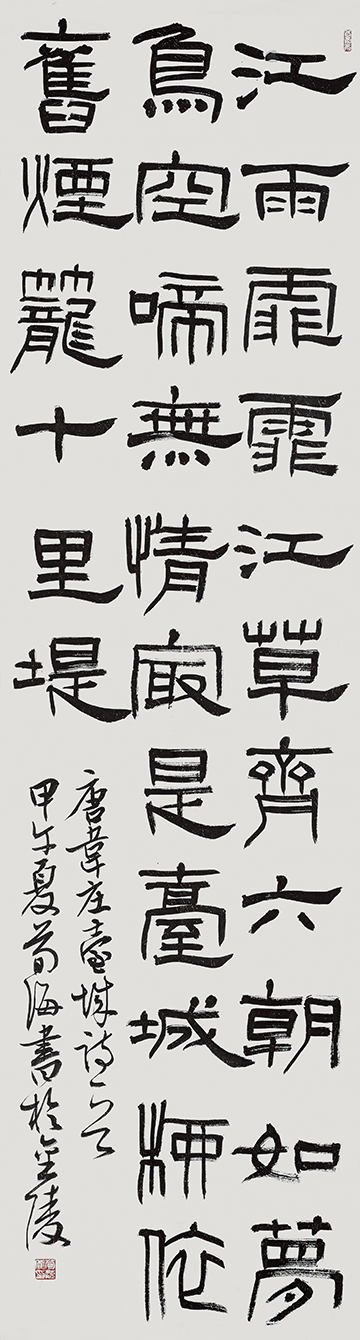 江雨霏霏江草齊六朝如夢
鳥空啼無情最是臺城柳依
舊煙籠十里堤
唐韋庄臺城詩一首
甲午夏荀海書於金陵